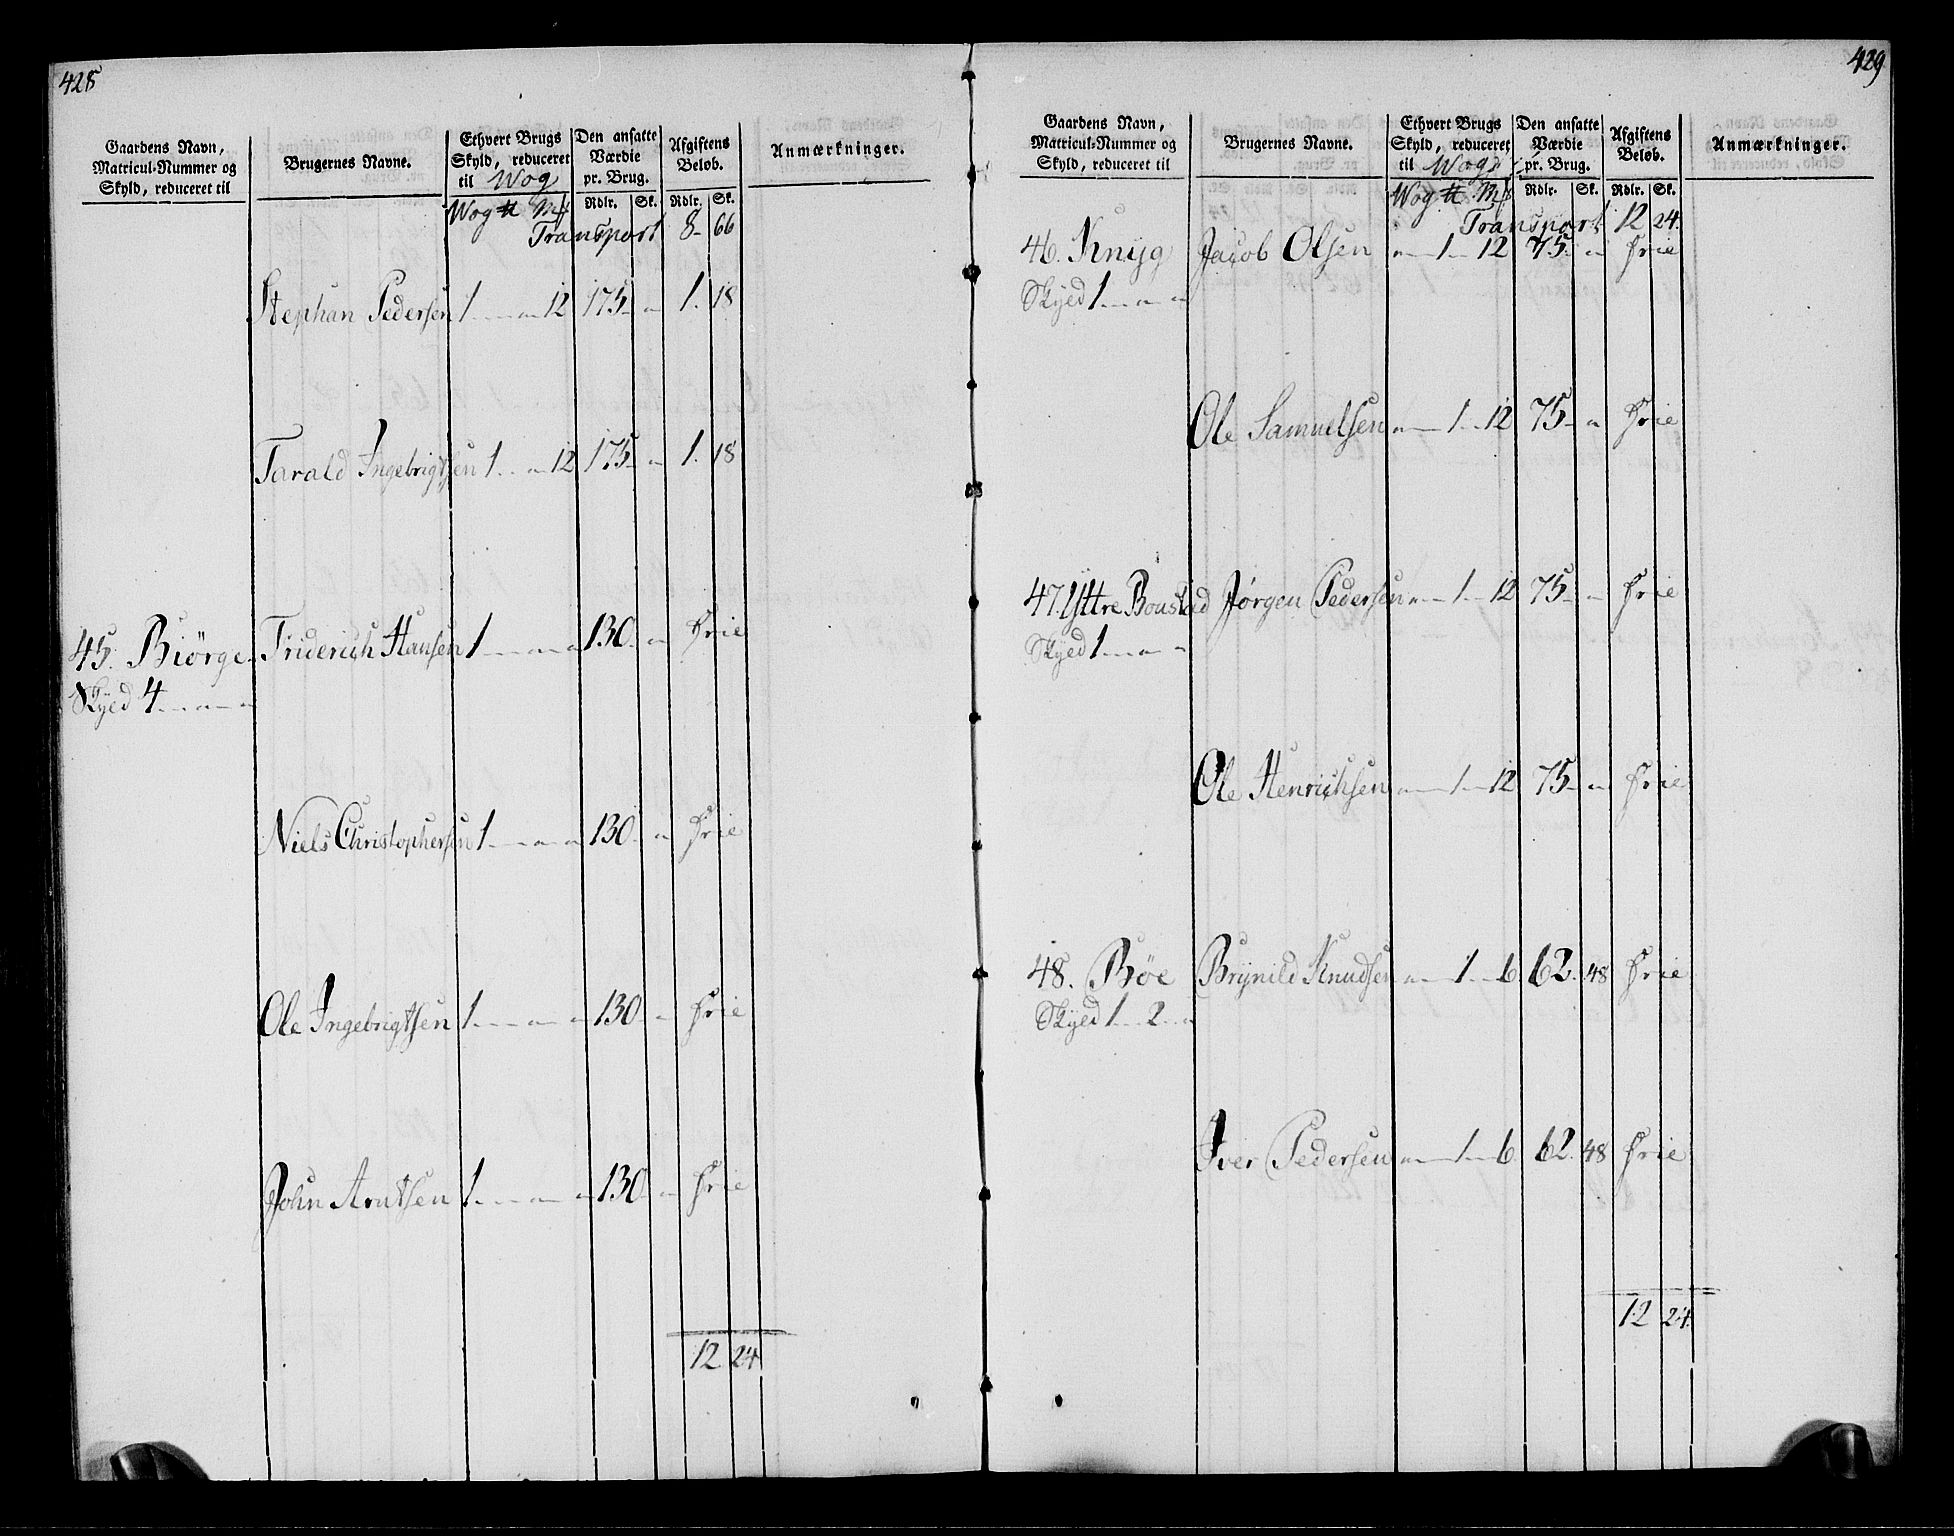 428
Gaardens Navn, Matricul-Nummer og Skyld, reduceret til
Brugernes Navne.
Ethvert Brugs Skyld, reduceret til Wog
Den ansatte Værdie pr. Brug.
Afgiftens Beløb.
Anmærkninger.
Wog ℔ Mk Rdlr. Sk. Rdlr. Sk.
Transport 8 - 66
Stephan Pedersen 1 - - 12 175 - - 1. 18
Tarald Ingebrigtsen 1 - - 12 175 - - 1. 18
45. Biørge Friderich Hansen 1 - - - 130 - - frie
Skyld 4 - - -
Niels Christophersen 1 - - - 130 - - frie
Ole Ingebrigtsen 1 - - - 130 - - frie
John Arntsen 1 - - - 130 - - frie
12 24
429
Gaardens Navn, Matricul-Nummer og Skyld, reduceret til
Brugernes Navne.
Ethvert Brugs Skyld, reduceret til Wog
Den ansatte Værdie pr. Brug.
Afgiftens Beløb.
Anmærkninger.
Wog ℔ Mk Rdlr. Sk. Rdlr. Sk.
Transport 12 24
46. Knyg Jacob Olsen - 1 - 12 75 - - frie
Skyld 1 - - -
Ole Samuelsen - 1 - 12 75 - - frie
47. Yttre Boustad Jørgen Pedersen - 1 - 12 75 - - frie
Skyld 1 - - -
Ole Henrichsen - 1 - 12 75 - - frie
48. Bøe Brynild Knudsen - 1 - 6 62 - 48 frie
Skyld 1 - 2 - -
Iver Pedersen - 1 - 6 62 - 48 frie
12 24